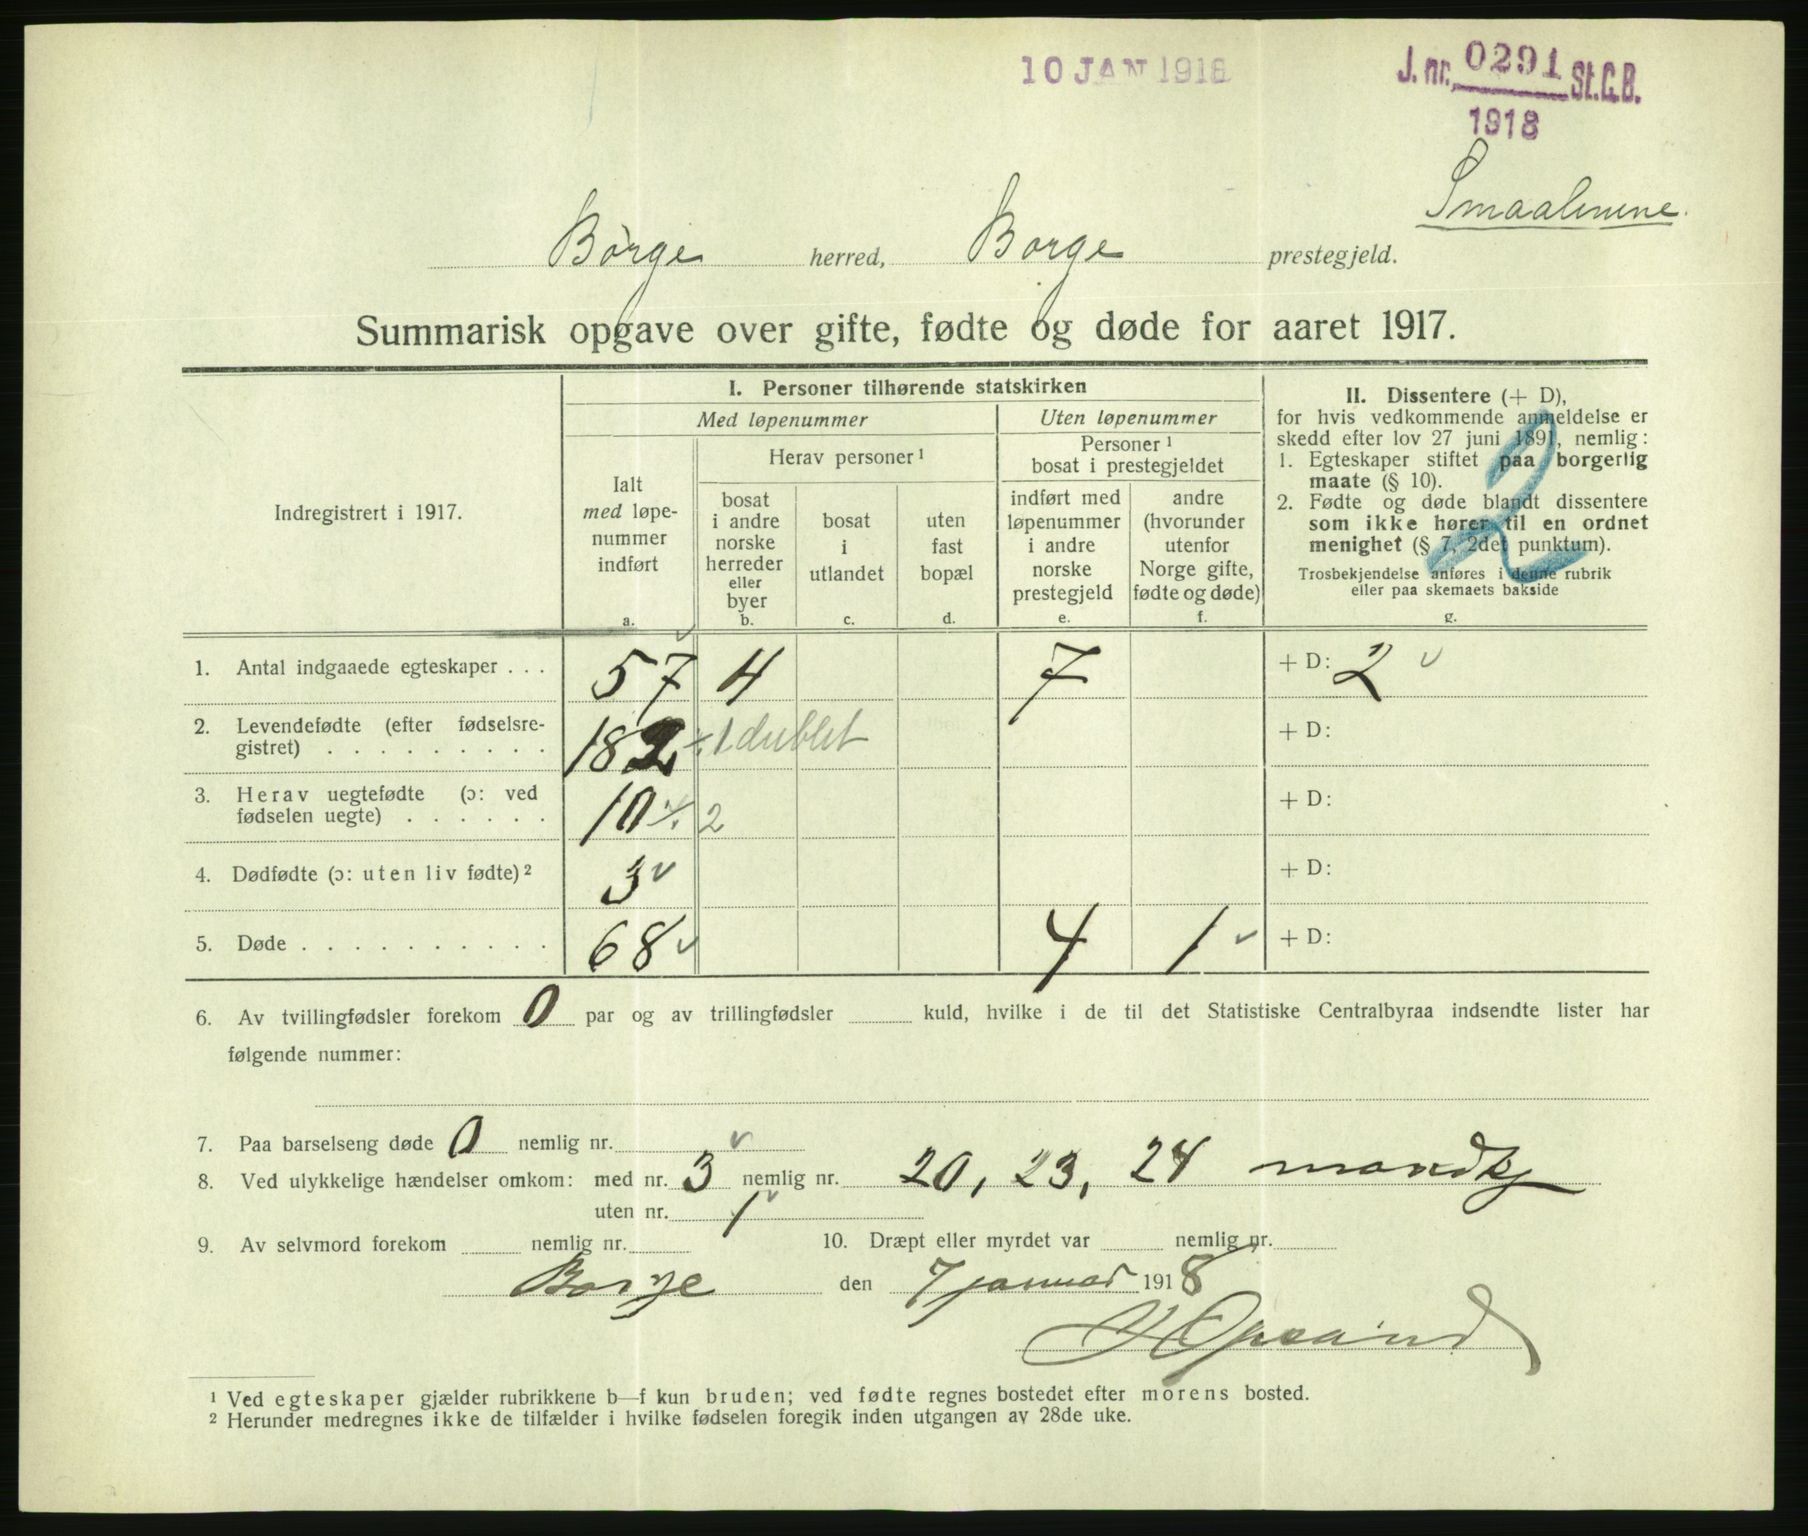 10 JAN 1918
J. nr. 0291 St.C.B.
1918
Smaalenene.
Børge herred, Borge prestegjeld.
Summarisk opgave over gifte, fødte og døde for aaret 1917.
Indregistrert i 1917.
I. Personer tilhørende statskirken
Med løpenummer
Uten løpenummer
Ialt
med løpe-
nummer
indført
a.
Herav personer ¹
bosat
i andre
norske
herreder
eller
byer
b.
bosat
i
utlandet
c.
uten
fast
bopæl
d.
Personer ¹
bosat i prestegjeldet
indført med
løpenummer
i andre
norske
prestegjeld
e.
andre
(hvorunder
utenfor
Norge gifte,
fødte og døde)
f.
II. Dissentere (+ D),
for hvis vedkommende anmeldelse er
skedd efter lov 27 juni 1891, nemlig:
1. Egteskaper stiftet paa borgerlig
maate (§ 10).
2. Fødte og døde blandt dissentere
som ikke hører til en ordnet
menighet (§ 7, 2det punktum).
Trosbekjendelse anføres i denne rubrik
eller paa skemaets bakside
g.
2
1. Antal indgaaede egteskaper . . . 57 4 7 + D: 2
2. Levendefødte (efter fødselsre-
gistret) . . . . . . . . . 182 ÷ 1 dublet + D:
3. Herav uegtefødte (ɔ: ved
fødselen uegte) . . . . . . 10 ÷ 2 + D:
4. Dødfødte (ɔ: uten liv fødte) ² 3 + D:
5. Døde . . . . . . . . . . 68 4 1 + D:
6. Av tvillingfødsler forekom 0 par og av trillingfødsler kuld, hvilke i de til det Statistiske Centralbyraa indsendte lister har
følgende nummer:
7. Paa barselseng døde 0 nemlig nr.
8. Ved ulykkelige hændelser omkom: med nr. 3 nemlig nr. 20, 23, 24 mandkj
uten nr. 1
9. Av selvmord forekom nemlig nr. 10. Dræpt eller myrdet var nemlig nr.
Borge den 7 januar 1918
¹ Ved egteskaper gjælder rubrikkene b—f kun bruden; ved fødte regnes bostedet efter morens bosted.
² Herunder medregnes ikke de tilfælder i hvilke fødselen foregik inden utgangen av 28de uke.